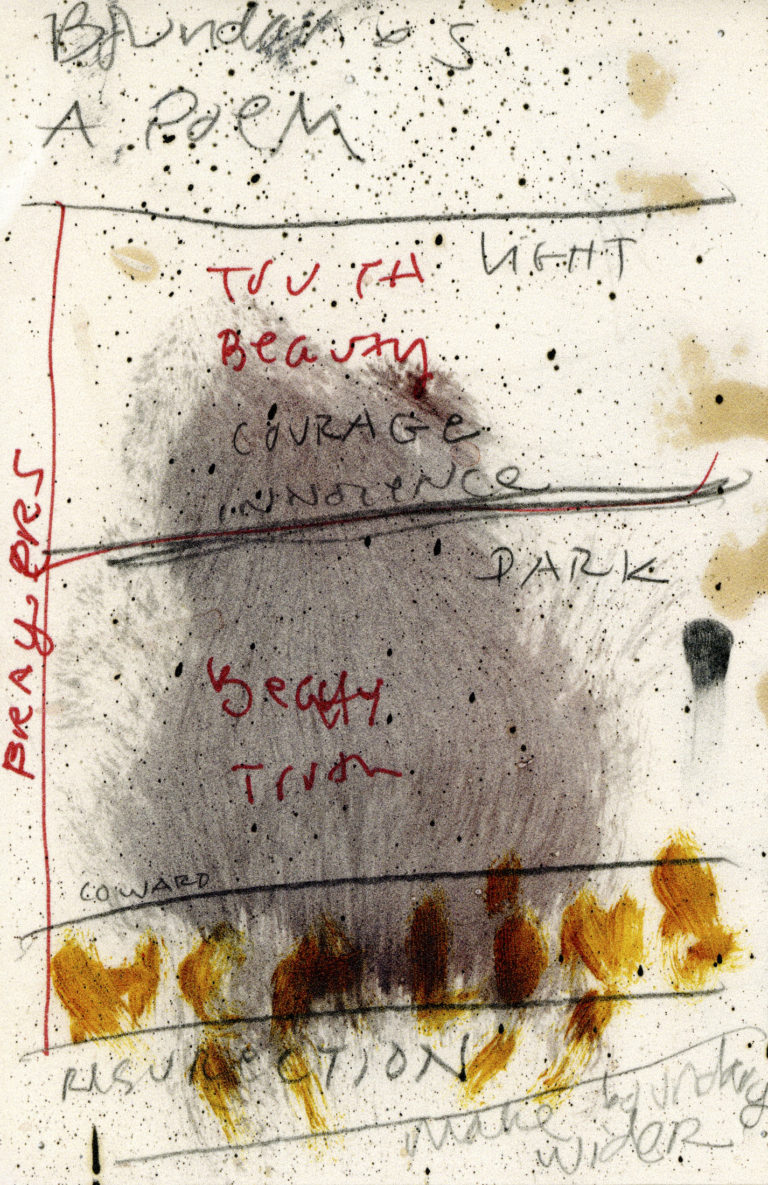 A Poem
LIGHT
TRUTH
Beauty
COURAGE
INNOCENCE
DARK
PRAYERS
Beauty
Truth
COWARD
RESURECTION
make boundary
WIDER